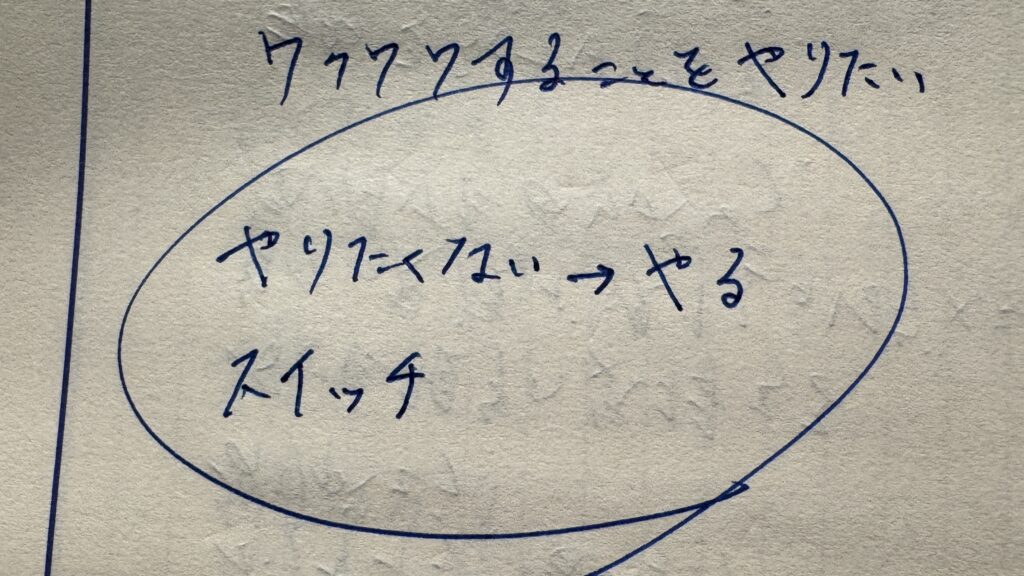 ワクワクすることをやりたい
やりたくない→やる
スイッチ